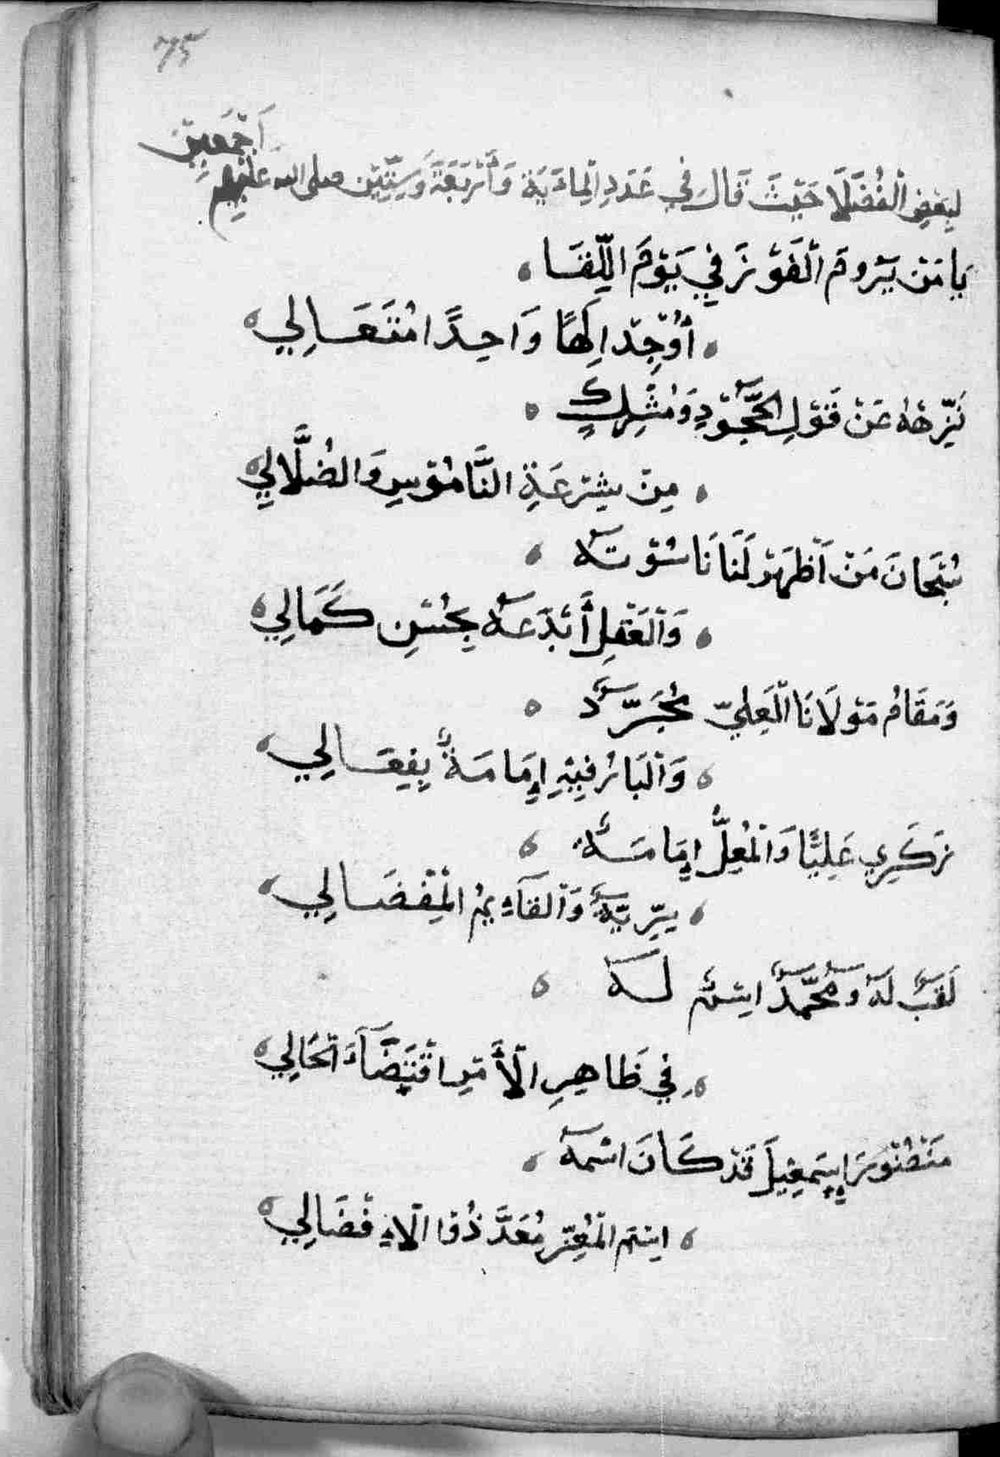 75
اَجْمَعِيْن
لِبَعْضِ الْفُضَلَا حَيْثَ قَالَ فِي عَدَدِ الْمادَيَة وَأَرْبَعَةَ وَسِتِّيْن صلى الله عليْهِم
يَا مَنْ يَرُومَ الْفَوْزَ فِي يَوْمَ اللِّقَا
أُوْجِدْ اِلَهًا وَاحِدًا مُتَعَالِي
نَزِّهْهُ عَنْ قَوْلِ الجَّحُوْدِ وَمُشْرِكٍ
مِنْ شِرْعَةِ النَّامُوْسِ وَالضُلَّالِي
سُبْحَانَ مَنْ اَظْهَرْ لَنَا نَاسُوْتَهُ
وَالْعَقْلِ أَبْدَعَهُ بِحُسْنِ كَمَالِي
وَمَقَامُ مَوْلَانَا الْعَلِيّ مُجَرَّدٌ
وَالْبَارُ فِيْهِ اِمَامَةٌ بِفِعَالِي
زَكَرِي عَلِيًّا وَالْمُعِلُّ اِمَامَةٌ
سِرِّيَّةٌ وَالْقَآئِمُ الْمِفْضَالِي
لَقَبٌ لَهُ وَمُحَمَّدٌ اسْمٌ لَهُ
فِي ظَاهِرِ الْأَمْرِ اقْتَضَآءَ الْحَالِي
مَنْصُوْرَ اِسْمَعِيْلَ قَدْ كَانَ اسْمُهُ
اسْم الْمُعِزّ مُعَدَّ ذُو الْاِفْضَالِي